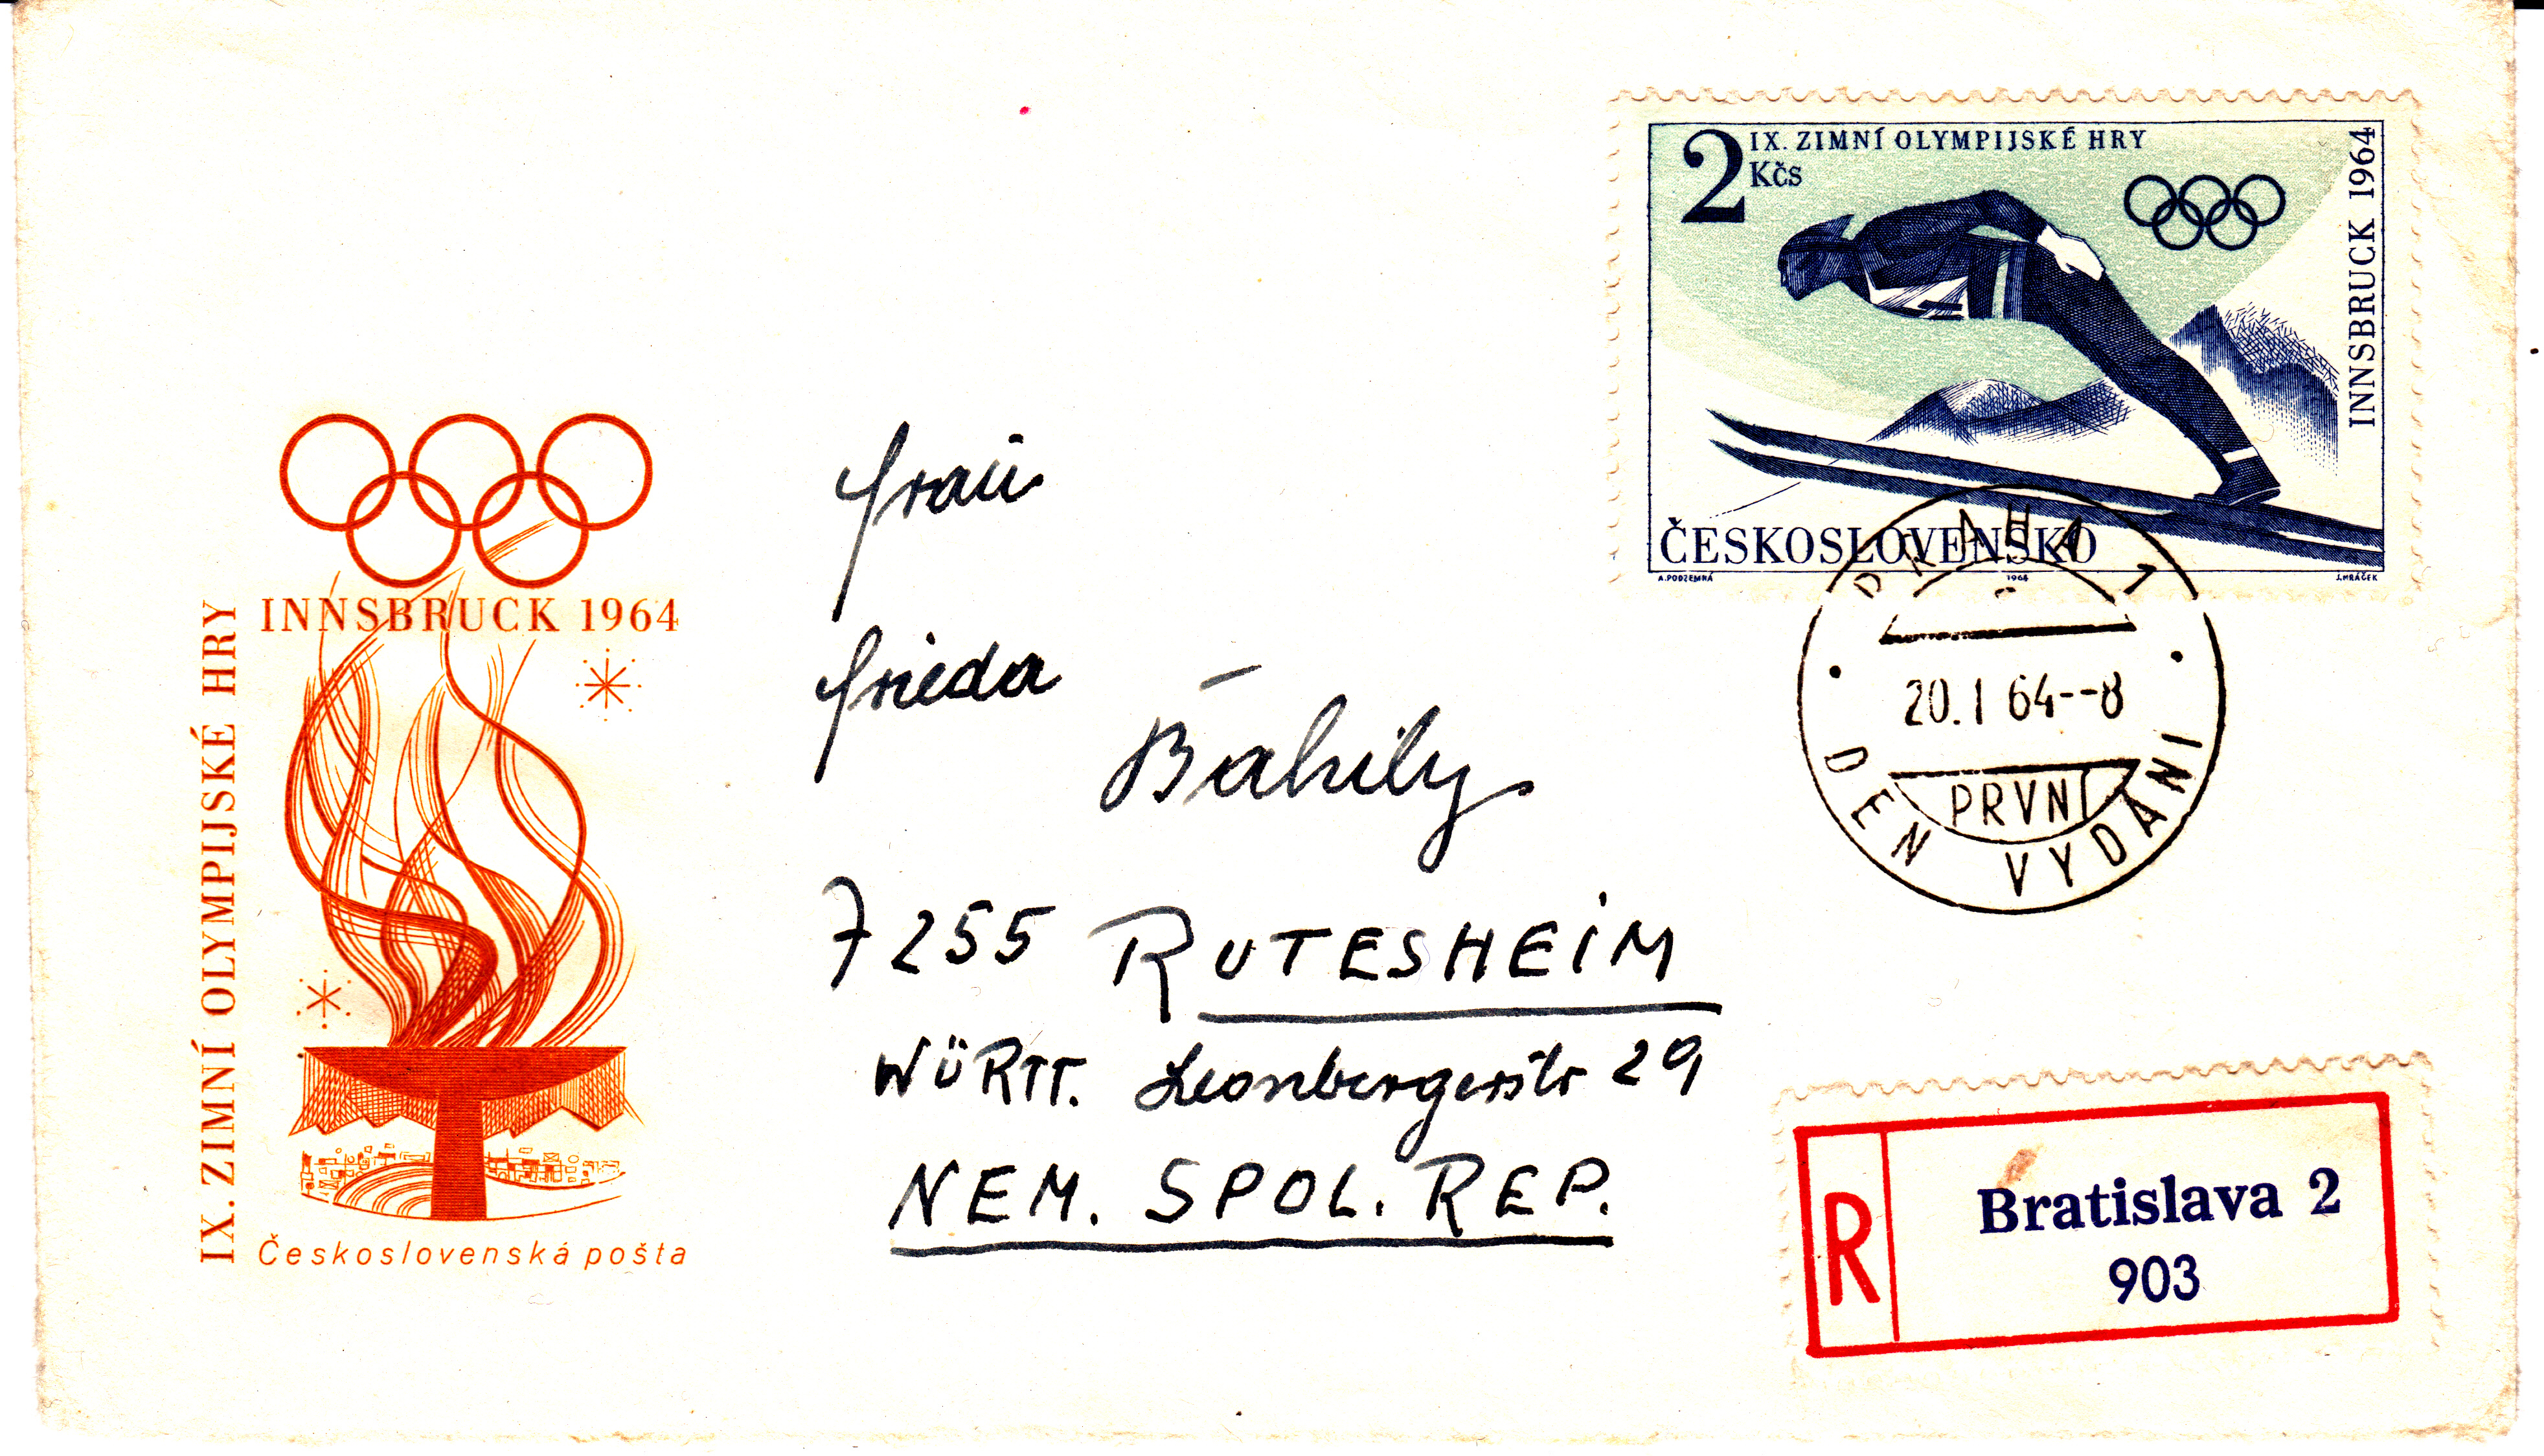 IX. ZIMNÍ OLYMPIJSKÉ HRY
2 Kčs
INNSBRUCK 1964
ČESKOSLOVENSKO
A.PODZEMNÁ
1964
J.HRÁČEK
PRAHA 1
20.1 64--8
PRVNÍ
DEN VYDÁNÍ
INNSBRUCK 1964
IX. ZIMNÍ OLYMPIJSKÉ HRY
Československá pošta
Frau
Frieda
7255 RUTESHEIM
WÜRTT. Leonbergerstr 29
NEM. SPOL. REP.
R
Bratislava 2
903